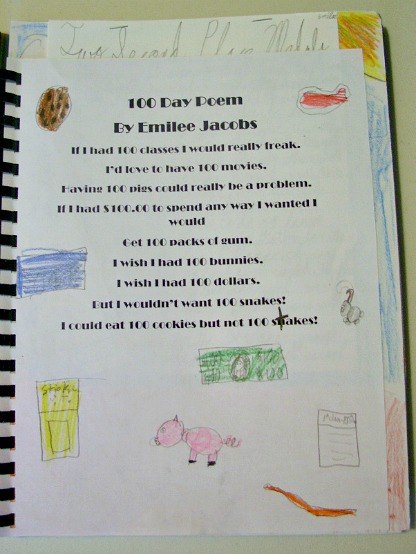 Two Second Place Medals
100 Day Poem
By Emilee Jacobs
If I had 100 classes I would really freak.
I'd love to have 100 movies.
Having 100 pigs could really be a problem.
If I had $100.00 to spend any way I wanted I
would
Get 100 packs of gum.
I wish I had 100 bunnies.
I wish I had 100 dollars.
But I wouldn't want 100 snakes!
I could eat 100 cookies but not 100